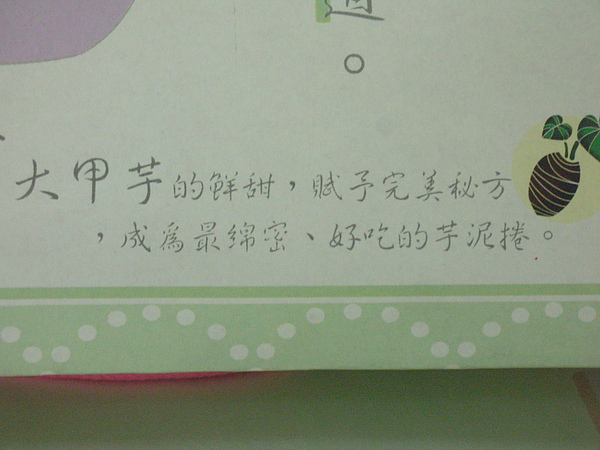 道。
大甲芋的鮮甜，賦予完美秘方
，成為最綿密、好吃的芋泥捲。